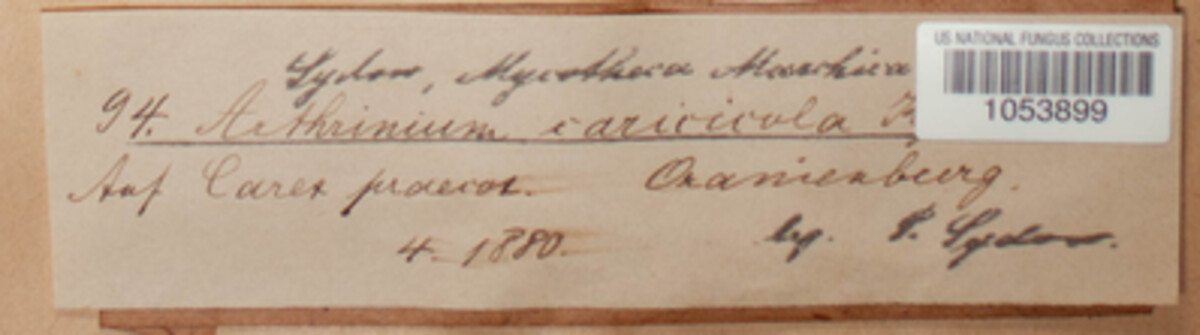 Sydow, Mycotheca Marchica
94. Arthrinium caricicola
Auf Carex praecox. Oranienburg.
4. 1880. leg. P. Sydow.
US NATIONAL FUNGUS COLLECTIONS
1053899